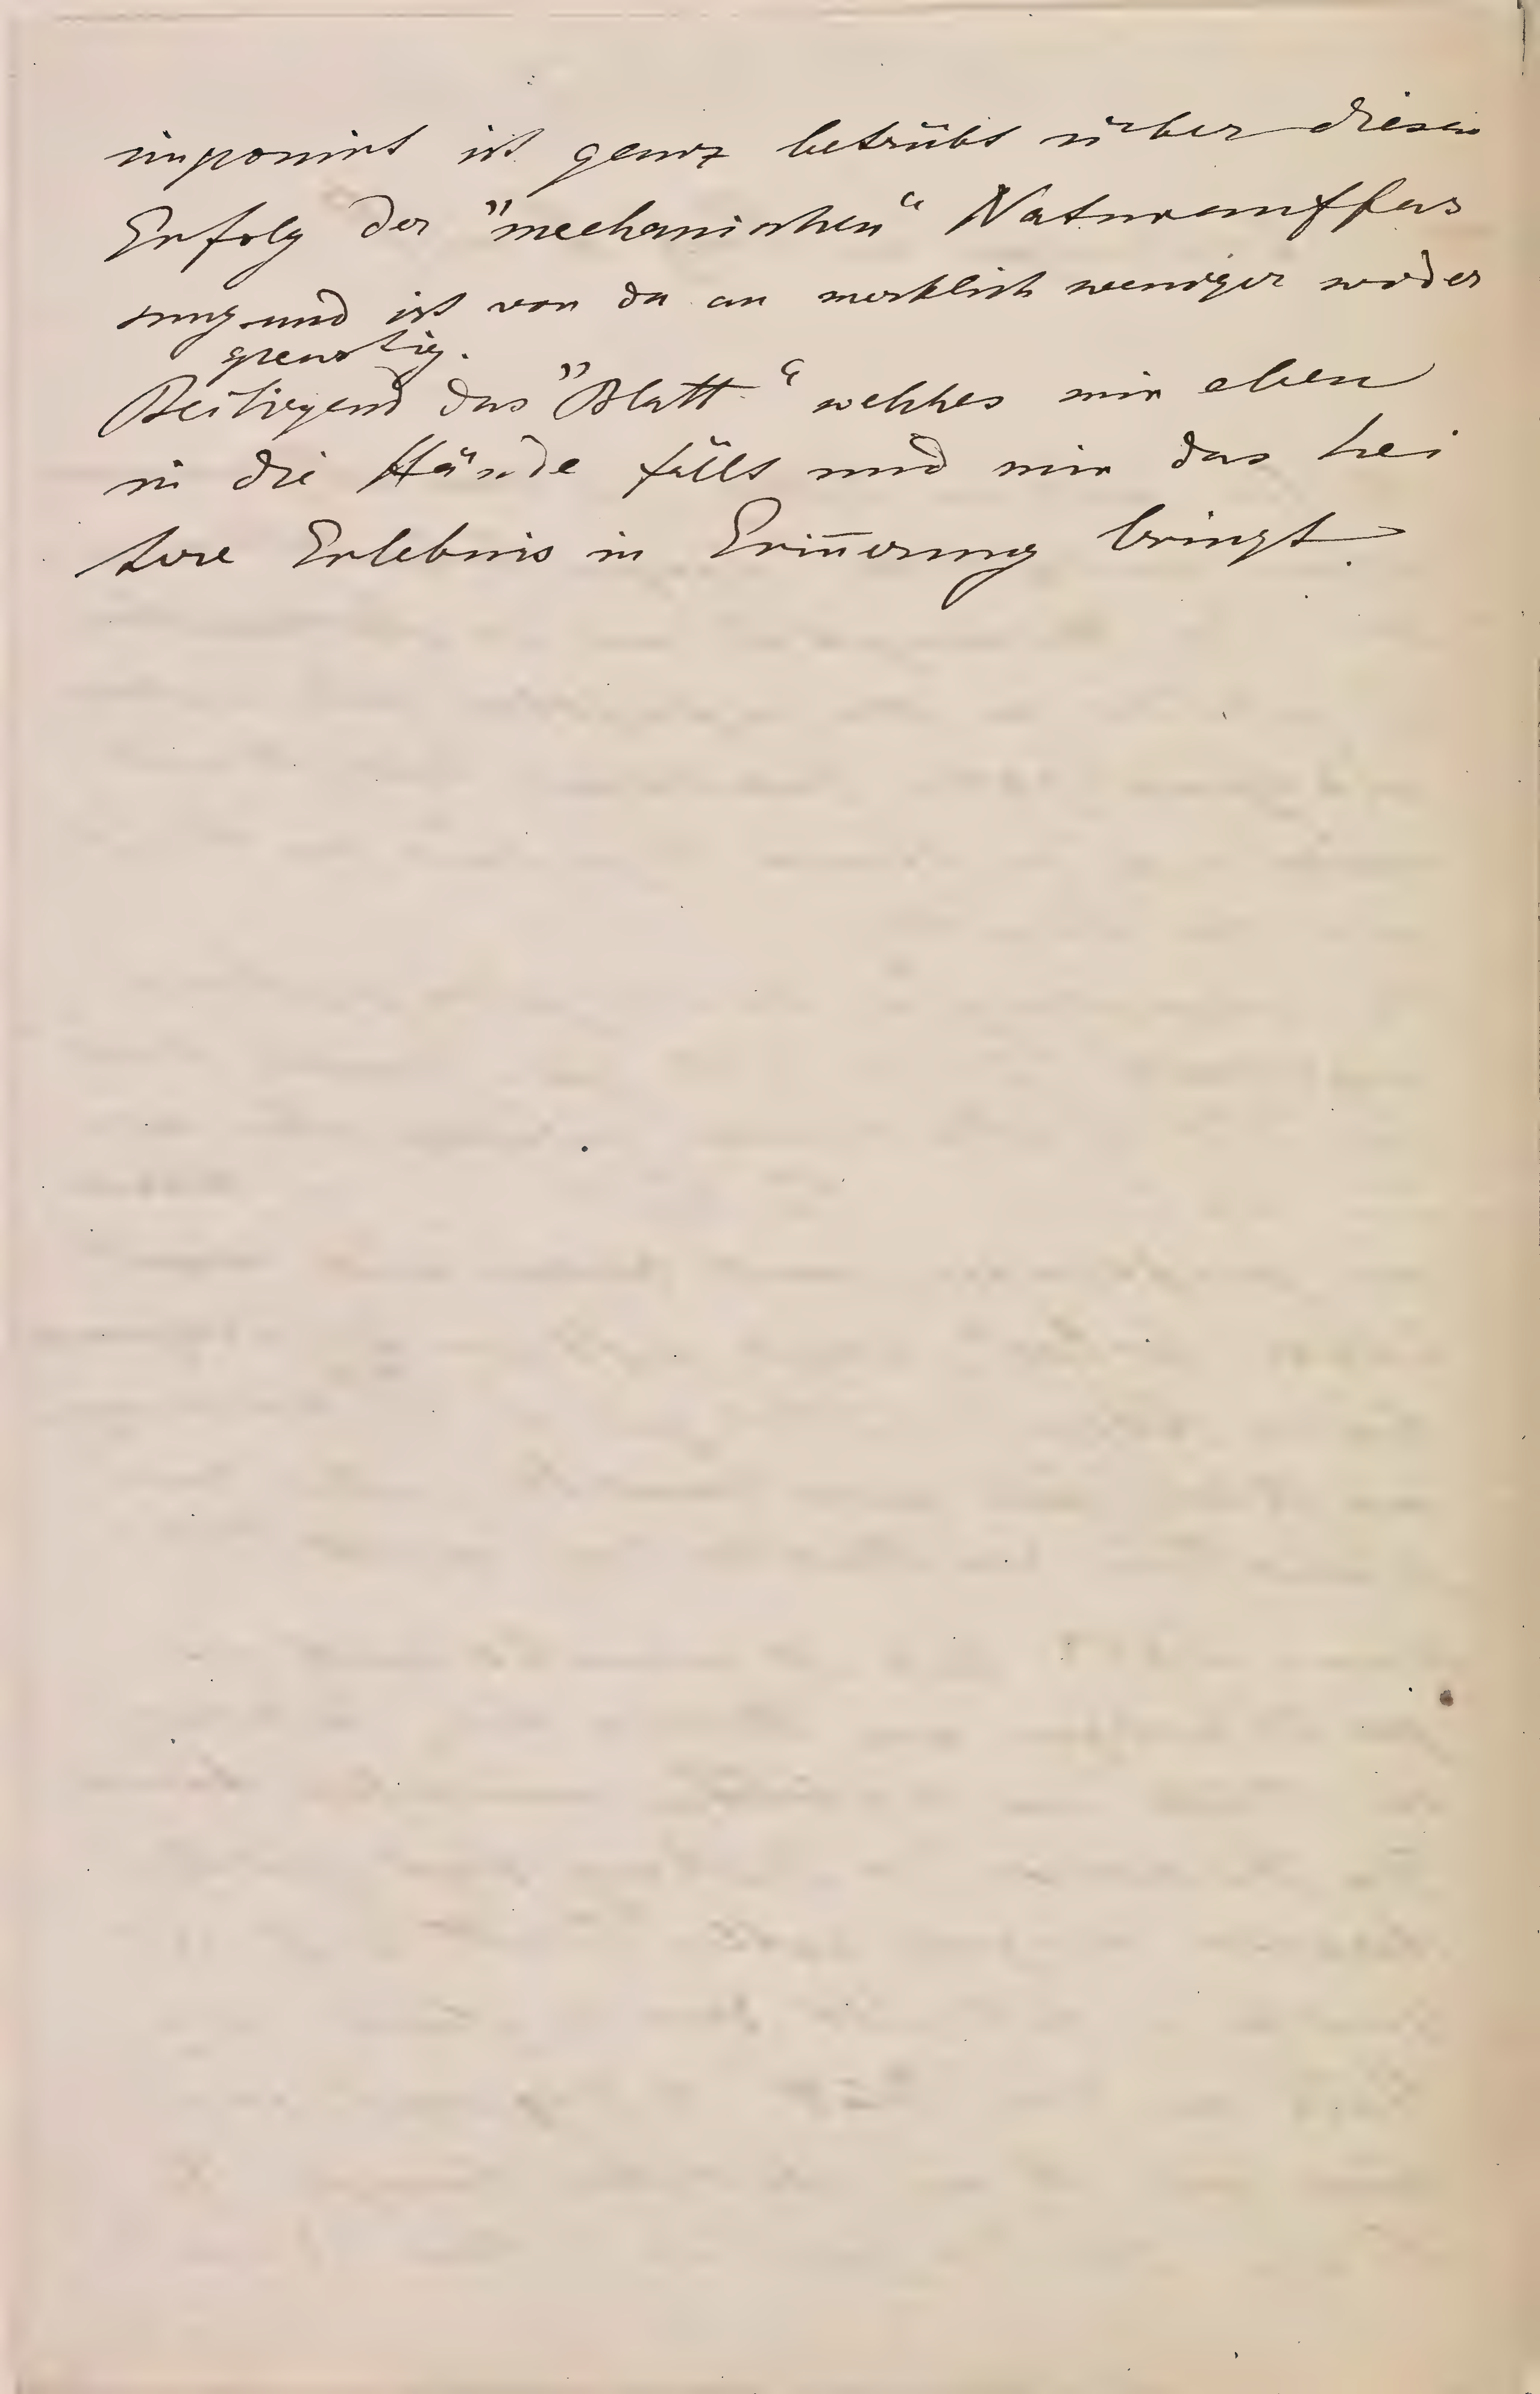 imponirt ist ganz betrübt über diesen
Erfolg der "mechanischen" Naturauffas
sung und ist von da an merklich weniger wider
spenstig.
Beiliegend das "Blatt" welches mir eben
in die Hände fällt und mir das hei
tere Erlebnis in Erin̄erung bringt.